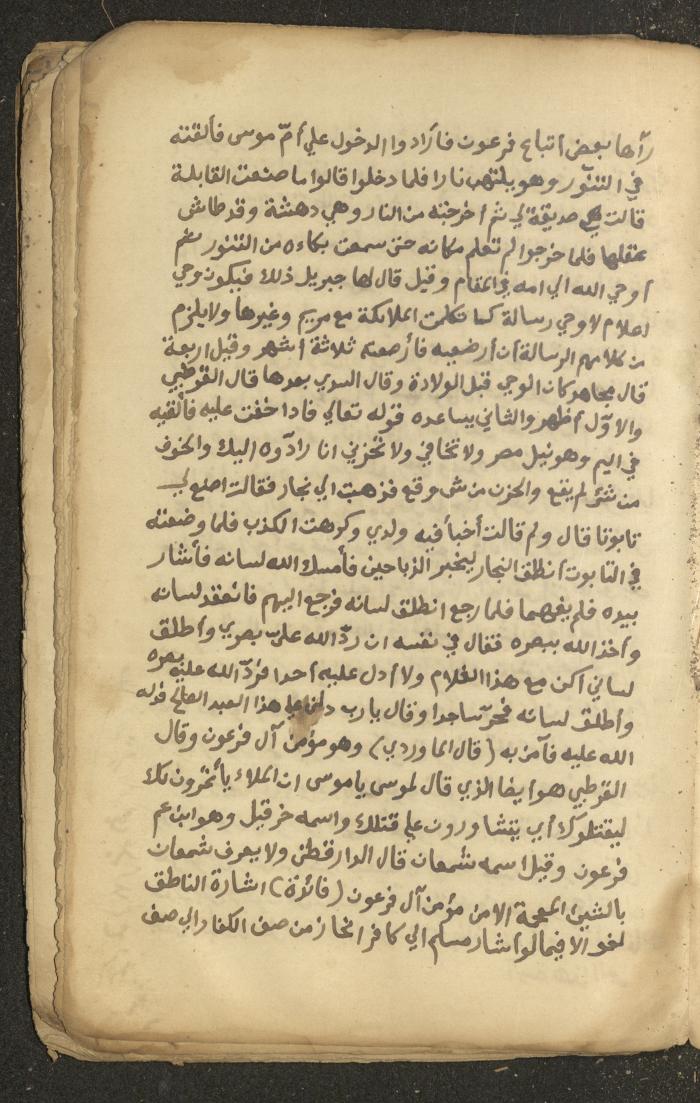 رآها بعض أتباع فرعون فأرادوا الدخول علي أمّ موسى فألقته
في التنّور وهو يلتهب نارا فلما دخلوا قالوا ما صنعت القابلة
قالت هي صديقة لي ثم أخرجته من النار وهي دهشة وقد طاش
عقلها فلما خرجوا لم تعلم مكانه حتى سمعت بكاءه من التنور ثم
أوحي الله الي امه في المقام وقيل قال لها جبريل ذلك فيكون وحي
اعلام لا وحي رسالة كما تكلمت الملائكة مع مريم وغيرها ولا يلزم
من كلامهم الرسالة أن أرضعيه فأرضعته ثلاثة أشهر وقيل اربعة
قال مجاهد كان الوحي قبل الولادة وقال السدي بعدها قال القرطبي
والاوّل أظهر والثاني يساعده قوله تعالي فاذا خفت عليه فألقيه
في اليم وهو نيل مصر ولا تخافي ولا تحزني انا رادّوه اليك والخوف
من شئ لم يقع والحزن من شئ وقع فذهبت الي نجار فقالت اصنع لي
تابوتا قال ولم قالت أخبأ فيه ولدي وكرهت الكذب فلما وضعته
في التابوت انطلق النجار ليخبر الذباحين فأمسك الله لسانه فأشار
بيده فلم يفهموا فلما رجع انطلق لسانه فرجع اليهم فانعقد لسانه
وأخذ الله ببصره فقال في نفسه ان ردّ الله عليّ بصري وأطلق
لساني أكن مع هذا الغلام ولا أدل عليه أحدا فردّ الله عليه بصره
وأطلق لسانه فخرّ ساجدا وقال يا رب دلني علي هذا العبد الصالح فدله
الله عليه فآمن به (قال الماوردي) وهو مؤمن آل فرعون وقال
القرطبي هو أيضا الذي قال لموسى ياموسى ان الملاء يأتمرون بك
ليقتلوك أي يتشاورون علي قتلك واسمه خرقيل وهو ابن عم
فرعون وقيل اسمه شمعان قال الدارقطني ولا يعرف شمعان
بالشين المعجمة الا من مؤمن آل فرعون (فائدة) اشارة الناطق
لغو الا فيما لو أشار مسلم الي كافر انحاز من صف الكفار الي صف